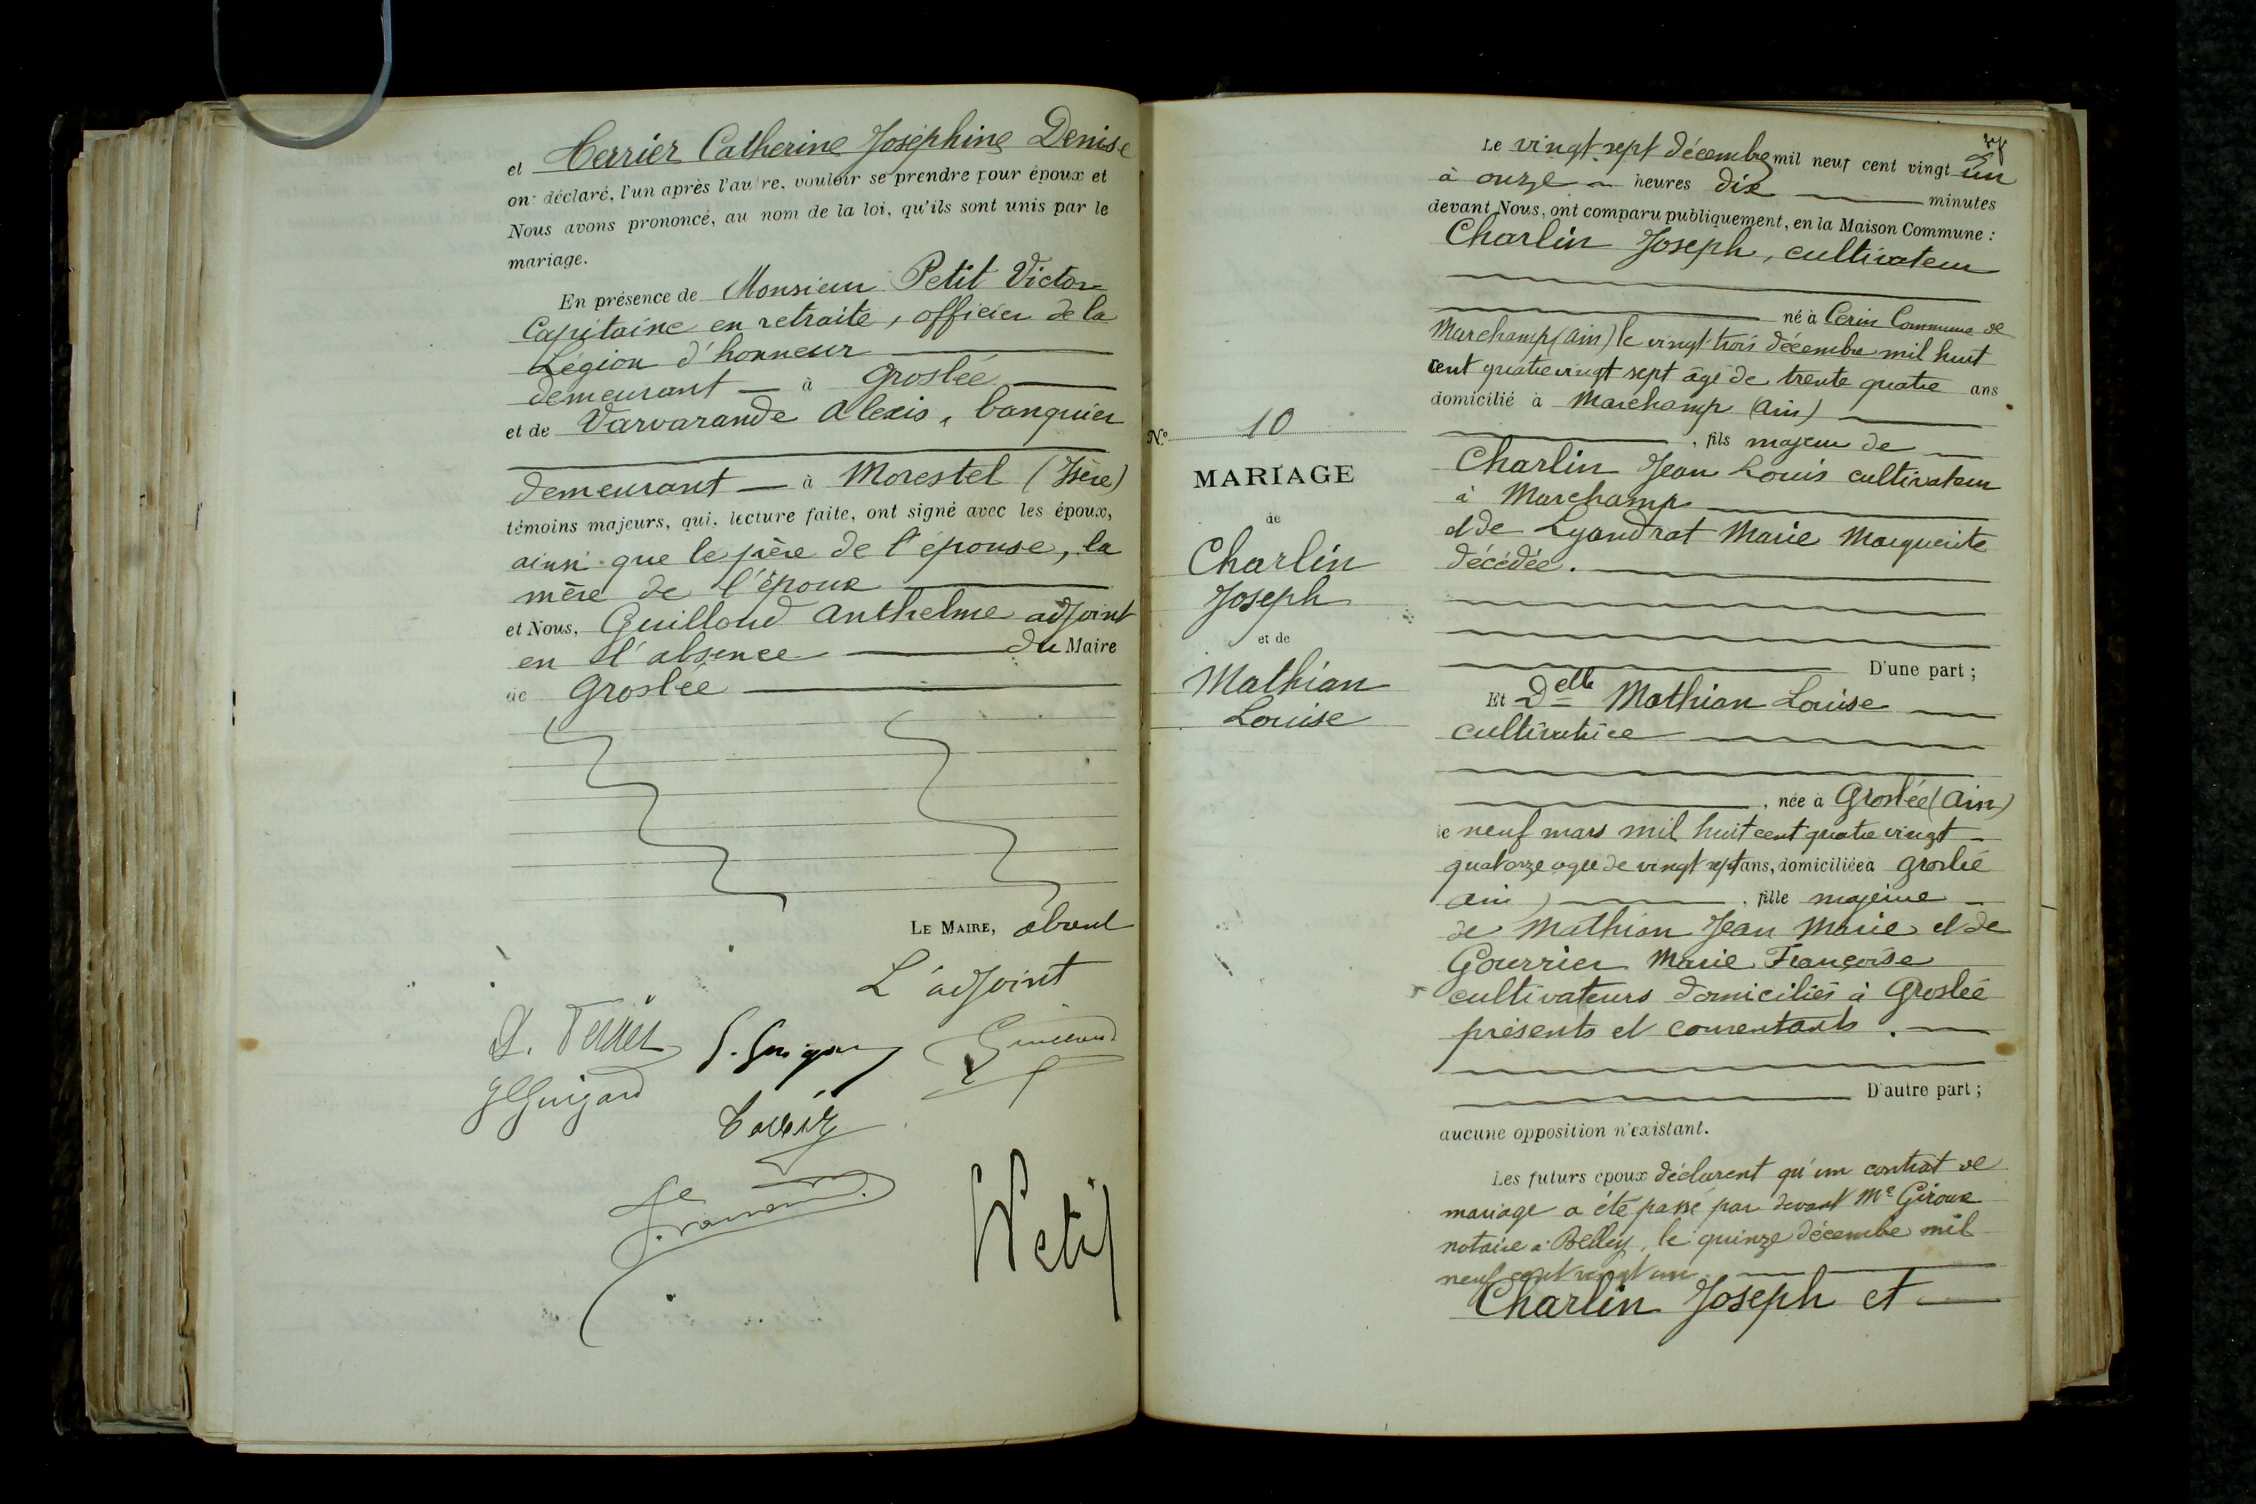 et Terrier Catherine Joséphine Denise
ont déclaré, l'un après l'autre, vouloir se prendre pour époux et
Nous avons prononcé, au nom de la loi, qu'ils sont unis par le
mariage.
En présence de Monsieur Petit Victor
Capitaine en retraite, officier de la
Légion d'honneur
demeurant à Groslée
et de Varvarande Alexis, banquier
demeurant à Morestel (Isère)
témoins majeurs, qui, lecture faite, ont signé avec les époux,
ainsi que le père de l'épouse, la
mère de l'époux
et Nous, Guilloud Anthelme adjoint
en l'absence du Maire
de Groslée
LE MAIRE, absent
L'adjoint
JGuigard
Petit
27
Le vingt sept décembre mil neuf cent vingt un
à onze heures dix minutes
devant Nous, ont comparu publiquement, en la Maison Commune :
Charlin Joseph, cultivateur
né à Cerin Commune de
Marchamp (Ain) le vingt trois décembre mil huit
cent quatre vingt sept âgé de trente quatre ans
domicilié à Marchamp (Ain)
, fils majeur de
Charlin Jean Louis cultivateur
à Marchamp
et de Lyandrat Marie Marguerite
décédée.
D'une part ;
N° 10
MARIAGE
de
Charlin
Joseph
et de
Mathian
Louise
Et Delle Mathian Louise
cultivatrice
, née à Groslée (Ain)
le neuf mars mil huit cent quatre vingt
quatorze agée de vingt sept ans, domiciliée à Groslée
Ain) , fille majeure
de Mathian Jean Marie et de
Gourrier Marie Françoise
cultivateurs domiciliés à Groslée
présents et consentants.
D'autre part ;
aucune opposition n'existant.
Les futurs époux déclarent qu'un contrat de
mariage a été passé par devant Me Giroux
notaire à Belley, le quinze décembre mil
neuf cent vingt un.
Charlin Joseph et